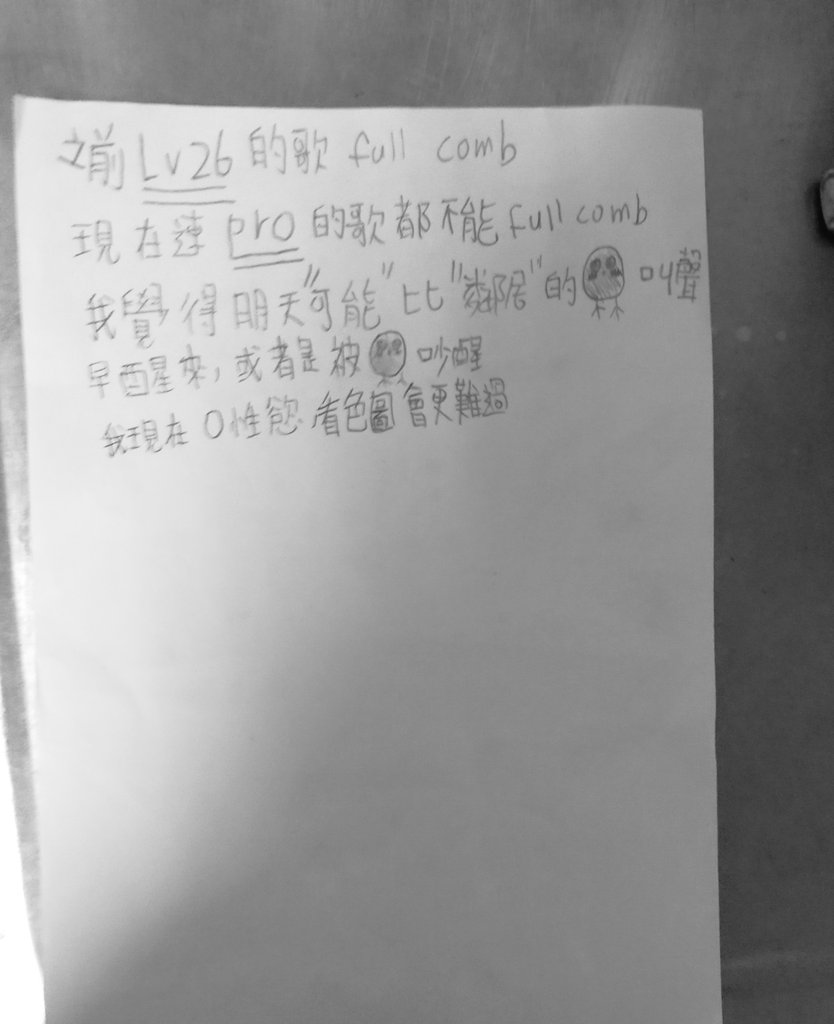 之前 Lv26 的歌 full comb
現在連 pro 的歌都不能 full comb
我覺得明天"可能"比"鄰居"的 叫聲
早醒來，或者是被 吵醒
我現在 0性慾 看色圖會更難過